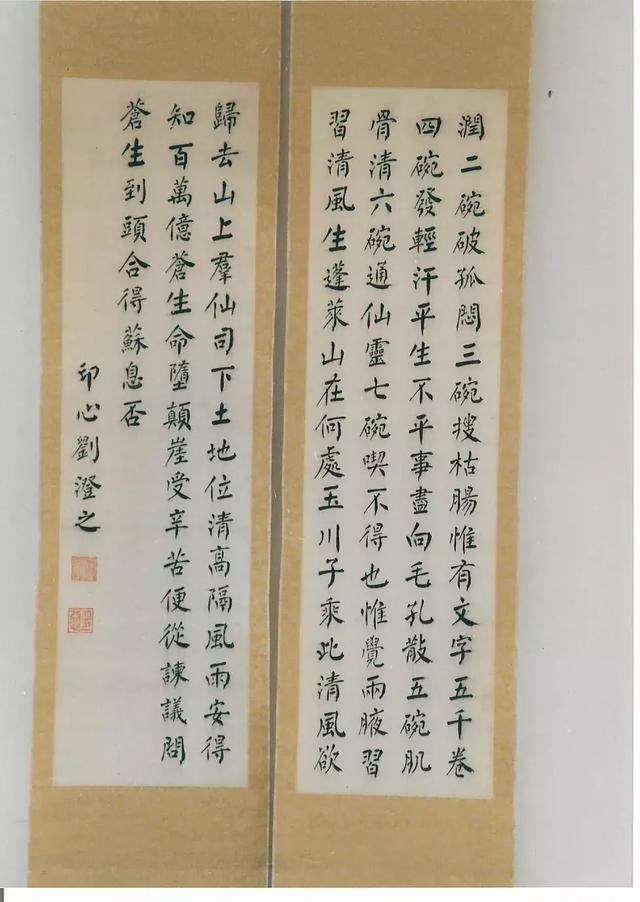 潤二碗破孤悶三碗搜枯腸惟有文字五千卷
四碗發輕汗平生不平事盡向毛孔散五碗肌
骨清六碗通仙靈七碗喫不得也惟覺兩腋習
習清風生蓬萊山在何處玉川子乘此清風欲
歸去山上羣仙司下土地位清高隔風雨安得
知百萬億蒼生命墮顛崖受辛苦便從諫議問
蒼生到頭合得蘇息否
印心劉澄之